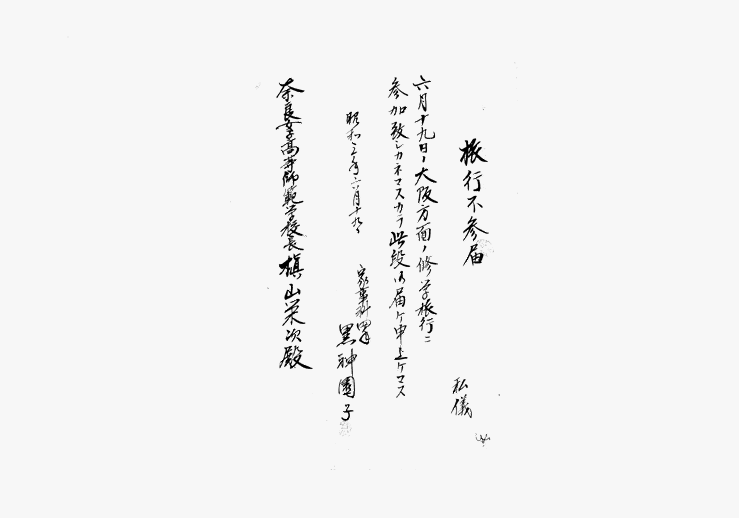 旅行不参届
私儀
六月十九日ノ大阪方面ノ修学旅行ニ
参加致シカネマスカラ此段御届ケ申上ケマス
昭和三年六月十九日
家事科四年
黒神園子
奈良女子高等師範学校長 槇山栄次殿